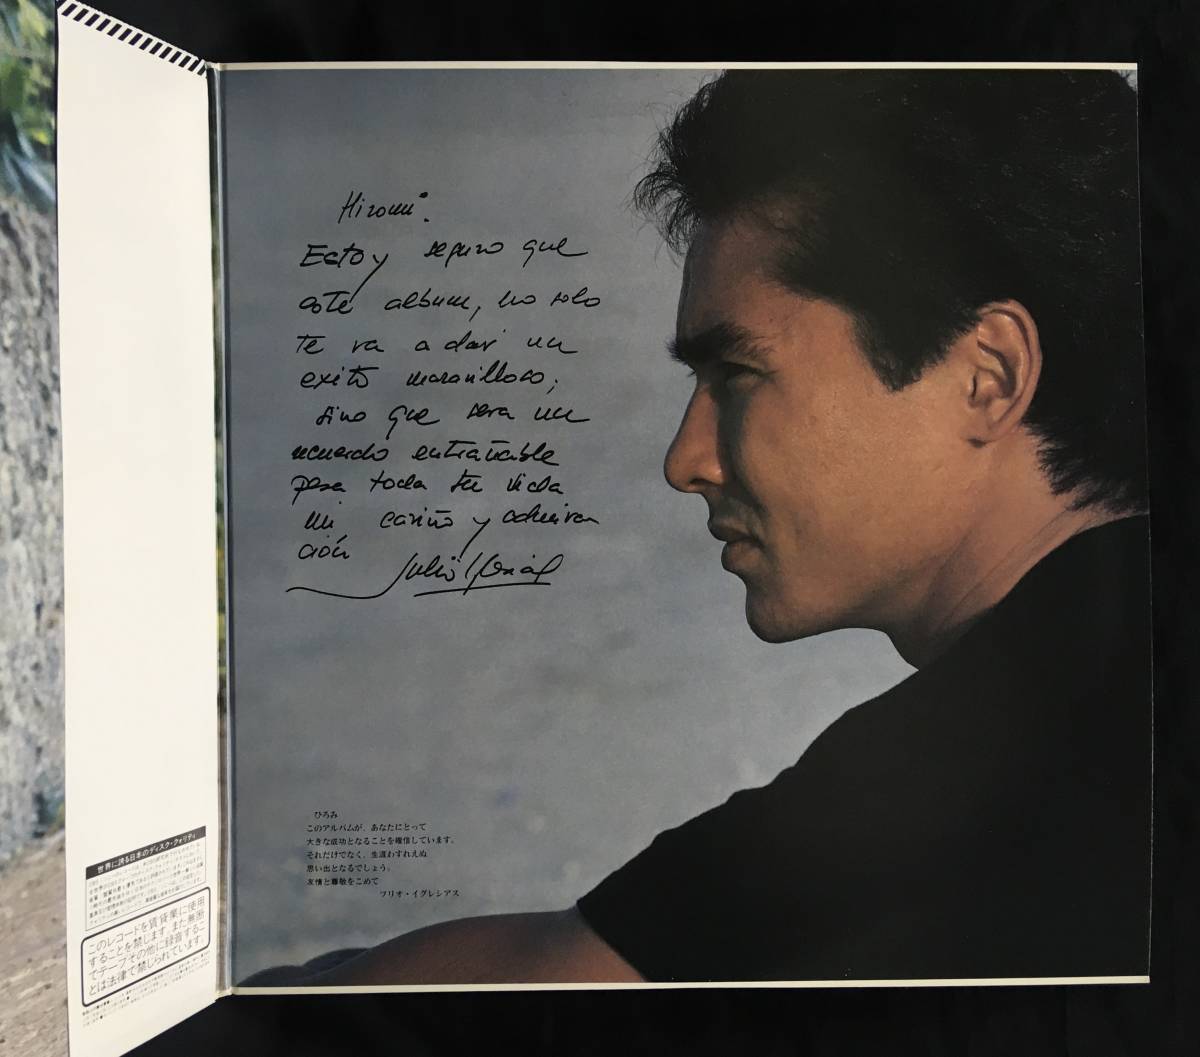 Hiromi.
Estoy seguro que
este album, no solo
te va a dar un
exito maravilloso;
sino que sera un
recuerdo entrañable
para toda tu vida
mi cariño y admira
ción
Julio Iglesias
ひろみ
このアルバムが、あなたにとって
大きな成功となることを確信しています。
それだけでなく、生涯わすれえぬ
思い出となるでしょう。
友情と尊敬をこめて
フリオ・イグレシアス
世界に誇る日本のディスク・クォリティ
このレコードを賃貸業に使用
することを禁じます。また無断
でテープその他に録音するこ
とは法律で禁じられています。